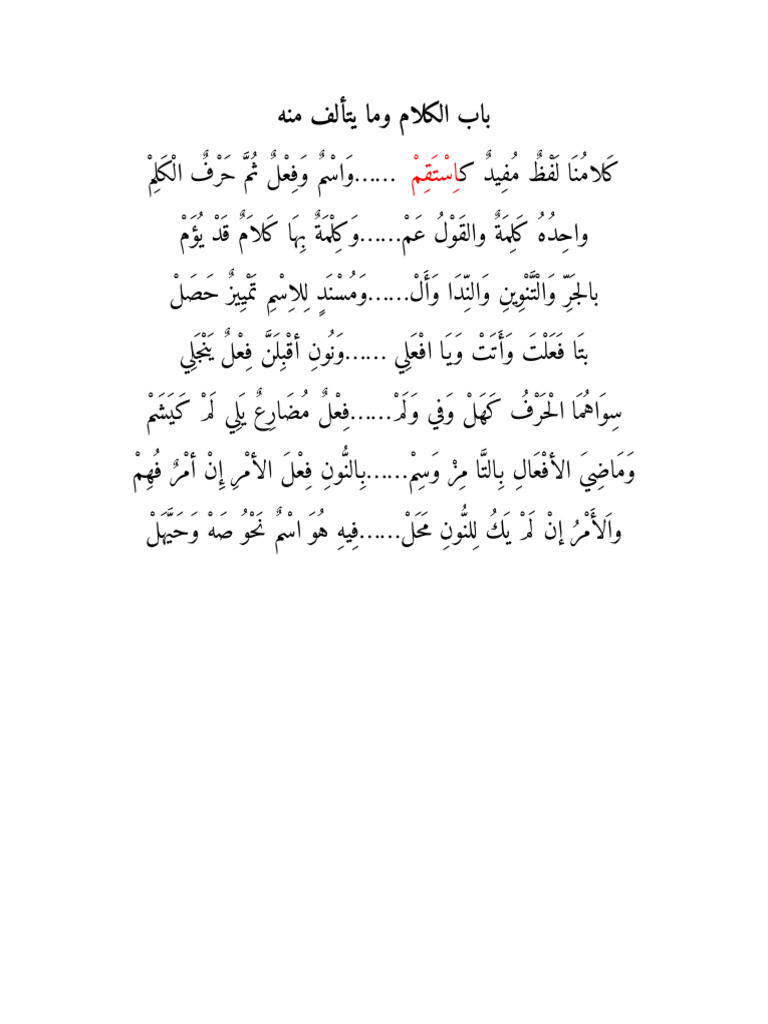 باب الكلام وما يتألف منه
كَلامُنَا لَفْظٌ مُفِيدٌ كاِسْتَقِمْ ......وَاسْمٌ وَفِعْلٌ ثُمَّ حَرْفٌ الْكَلِمْ
واحِدُهُ كَلِمَةٌ والقَوْلُ عَمْ......وَكِلْمَةٌ بِهَا كَلاَمٌ قَدْ يُؤَمْ
بالجَرِّ وَالْتَّنْوِينِ وَالنِّدَا وَأَلْ......وَمُسْنَدٍ لِلاِسْمِ تَمْيِيزٌ حَصَلْ
بتَا فَعَلْتَ وَأَتَتْ وَيَا افْعَلِي ......وَنُونِ أقْبِلَنَّ فِعْلٌ يَنْجَلِي
سِوَاهُمَا الْحَرْفُ كَهَلْ وَفي وَلَمْ......فِعْلٌ مُضَارِعٌ يَلِي لَمْ كَيَشَمْ
وَمَاضِيَ الأفْعَالِ بِالتَّا مِزْ وَسِمْ......بِالنُّونِ فِعْلَ الأمْرِ إِنْ أمْرٌ فُهِمْ
واَلأَمْرُ إنْ لَمْ يَكُ لِلنُّونِ مَحَلْ......فِيهِ هُوَ اسْمٌ نَحْوُ صَهْ وَحَيَّهَلْ